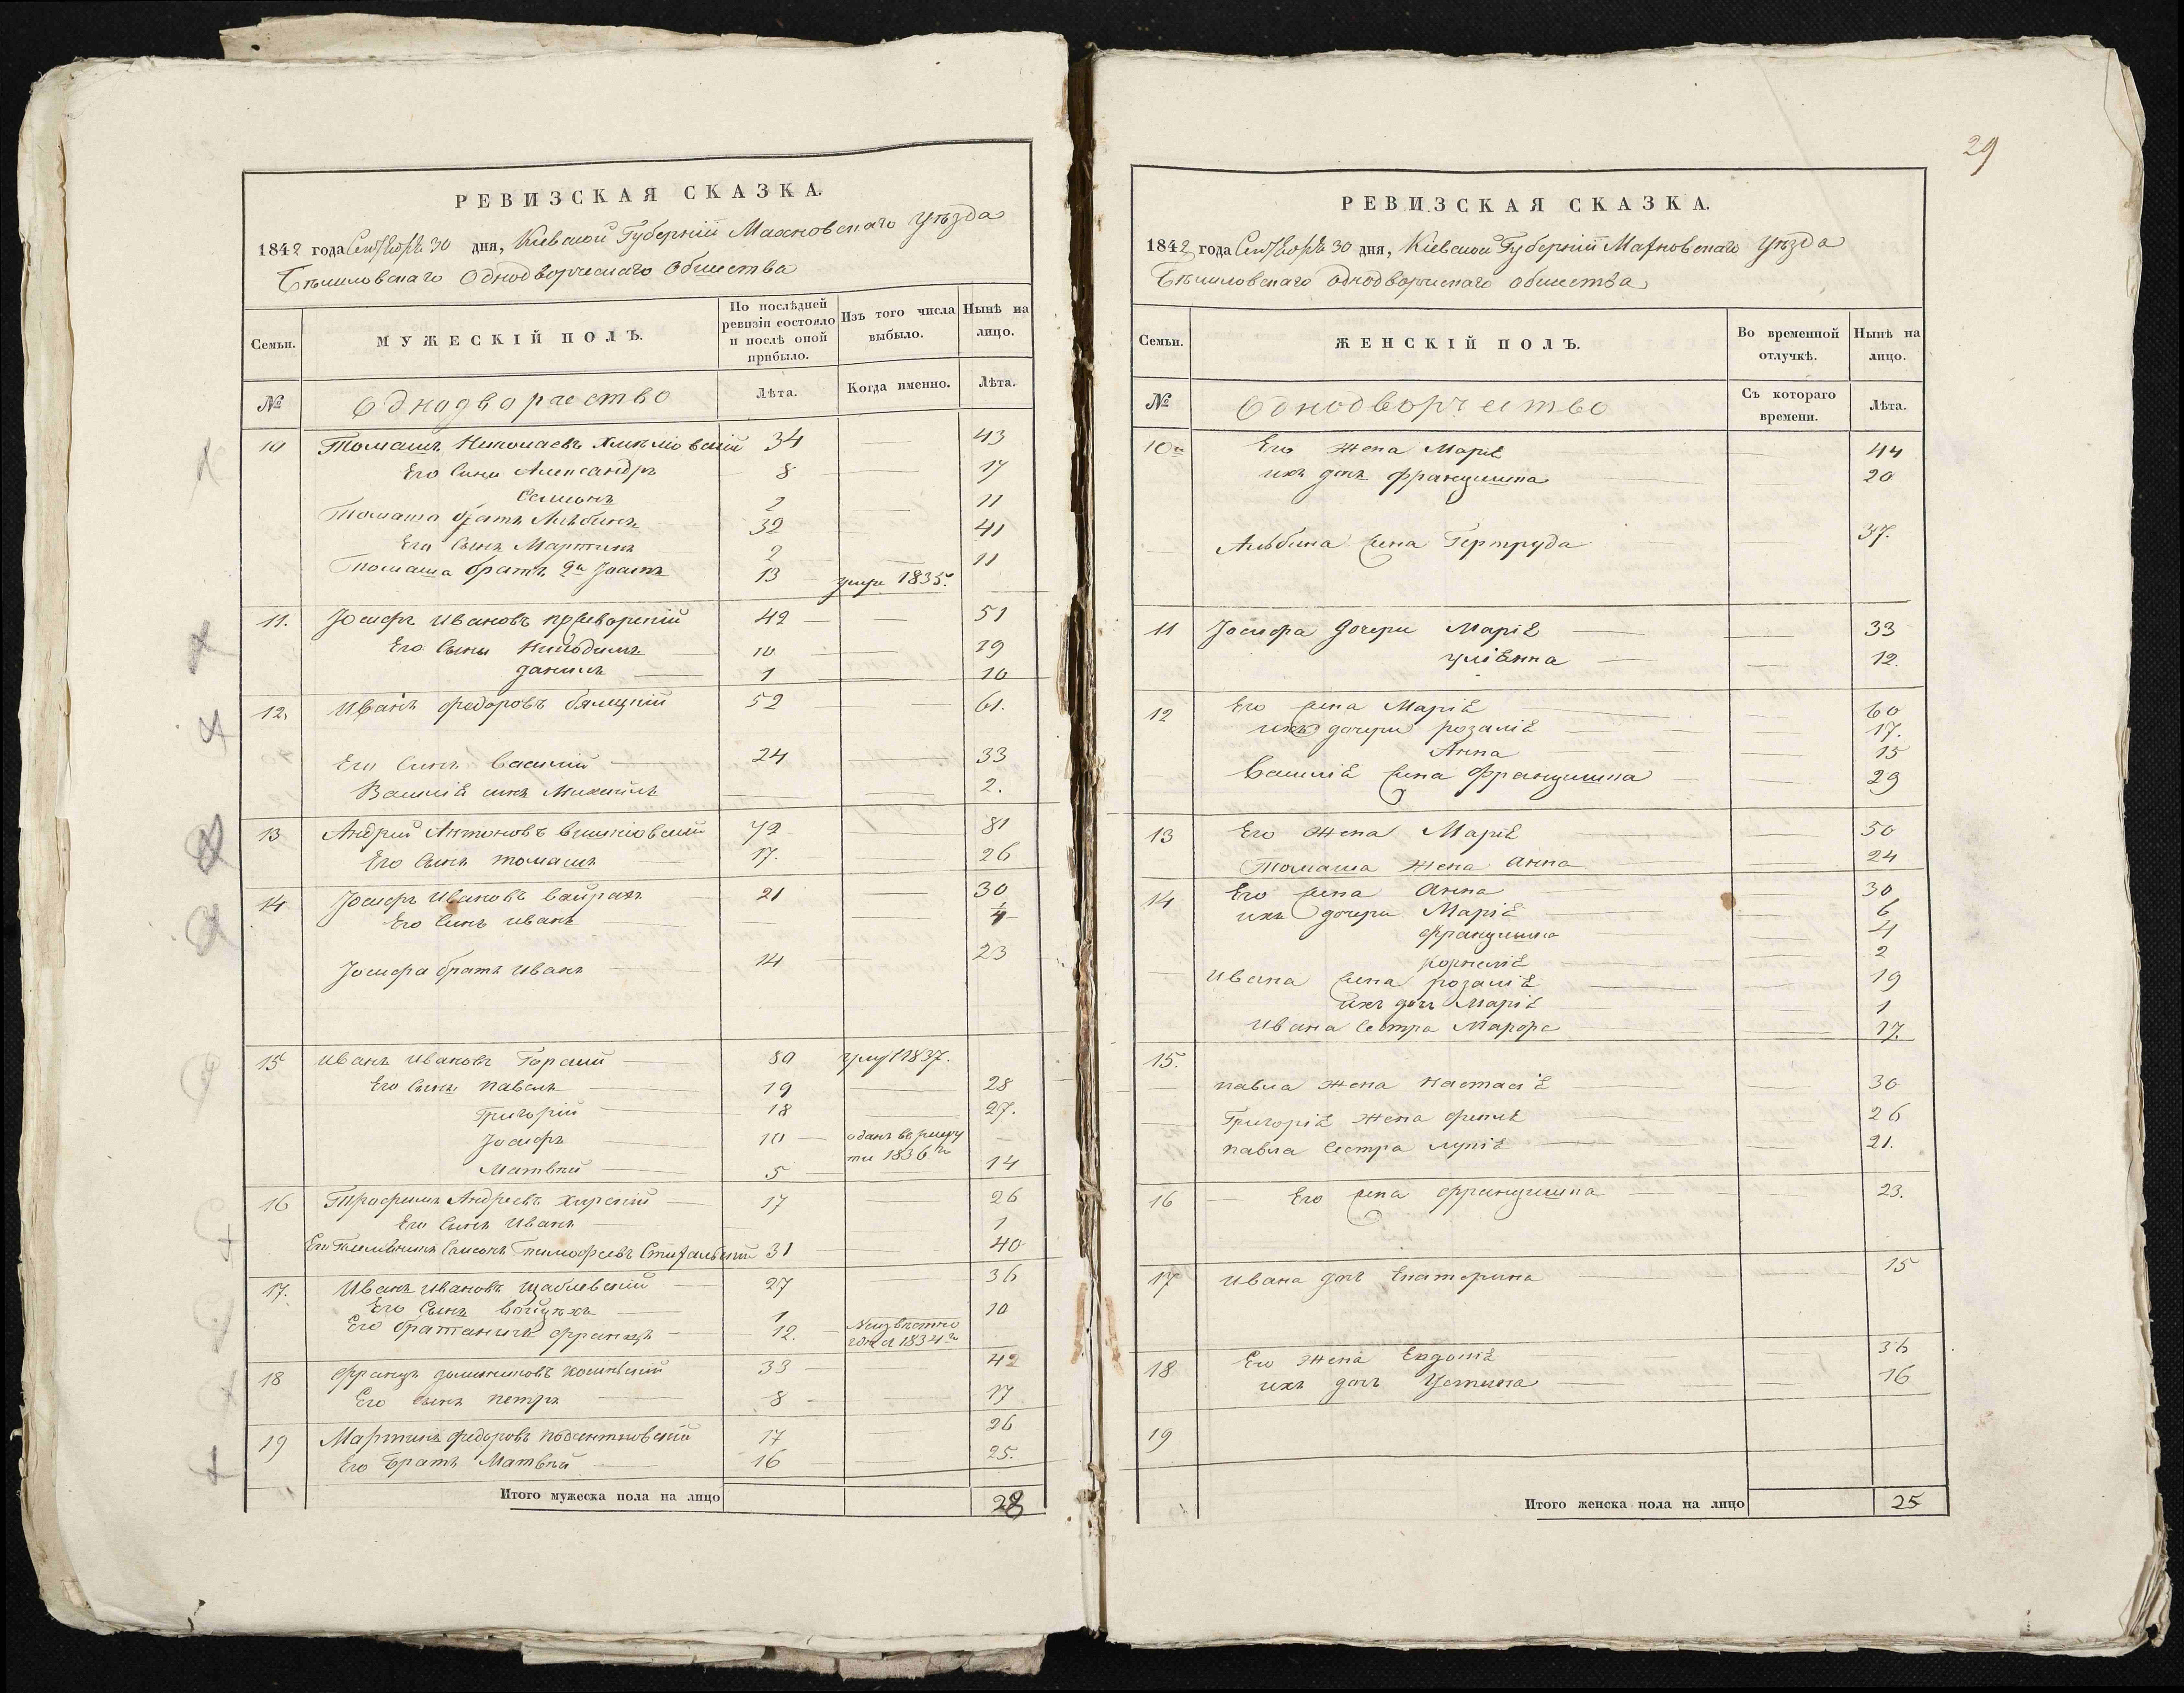 РЕВИЗСКАЯ СКАЗКА.
1842 года Сентября 30 дня, Кіевской Губерніи Махновскаго уѣзда
Однодворческаго Общества
Семьи.
МУЖЕСКІЙ ПОЛЪ.
По послѣдней ревизіи состояло и послѣ оной прибыло.
Изъ того числа выбыло.
Нынѣ на лицо.
№
Однодворчество
Лѣта.
Когда именно.
Лѣта.
10 Томашъ Николаевъ 34 43
Его сыны Александръ 8 17
Семионъ 2 11
Томаша братъ Альбинъ 32 41
Его сынъ Мартинъ 2 11
Томаша братъ 2й Іоанъ 13 умре 1835.
11. Іосифъ Ивановъ 42 51
Его сыны Никодимъ 10 19
данилъ 1 10
12. Иванъ федоровъ 52 61.
Его сынъ Василий 24 33
Василія сынъ Михаилъ 2.
13 Андрий Антоновъ 72 81
Его сынъ томашъ 17. 26
14 Іосифъ Ивановъ 21 30
Его сынъ иванъ 4
Іосифа братъ иванъ 14 23
15 иванъ ивановъ 80 1837.
Его сыны павелъ 19 28
Григорій 18 27.
Іосифъ 10 зданъ въ рекруты 1836го
Матвѣй 5 14
16 Трофимъ Андреевъ 17 26
Его сынъ иванъ 1
Его Племѣнникъ Самсонъ Тимофеевъ 31 40
17. Иванъ ивановъ щаблевскій 27 36
Его сынъ 1 10
Его братаничъ францъ 12. Неизвѣстно 1834го
18 францъ 33 42
Его сынъ петръ 8 17
19 Мартинъ федоровъ 17 26
Его Братъ Матвѣй 16 25.
Итого мужеска пола на лицо 28
29
РЕВИЗСКАЯ СКАЗКА.
1842 года Сентября 30 дня, Кіевской Губерніи Махновскаго уѣзда
однодворческаго общества
Семьи.
ЖЕНСКІЙ ПОЛЪ.
Во временной отлучкѣ.
Нынѣ на лицо.
№
Однодворчество
Съ котораго времени.
Лѣта.
10 Его жена Марія 44
ихъ дочь францишка 20
Альбина жена Гертруда 37.
11 Іосифа дочери Марія 33
уліянна 12.
12 Его жена Марія 60
ихъ дочери розалія 17.
Анна 15
Василія жена Францишка 29
13 Его жена Марія 50
Томаша жена анна 24
14 Его жена анна 30
ихъ дочери Марія 6
францишка 4
корнелія 2
ивана жена розалія 19
ихъ дочь Марія 1
ивана сестра 17.
15.
павла жена настасія 30
Григорія жена 26
павла сестра 21.
16 Его жена францишка 23.
17 ивана дочь Екатерина 15
18 Его жена Евдокія 36
ихъ дочь Устина 16
19
Итого женска пола на лицо 25